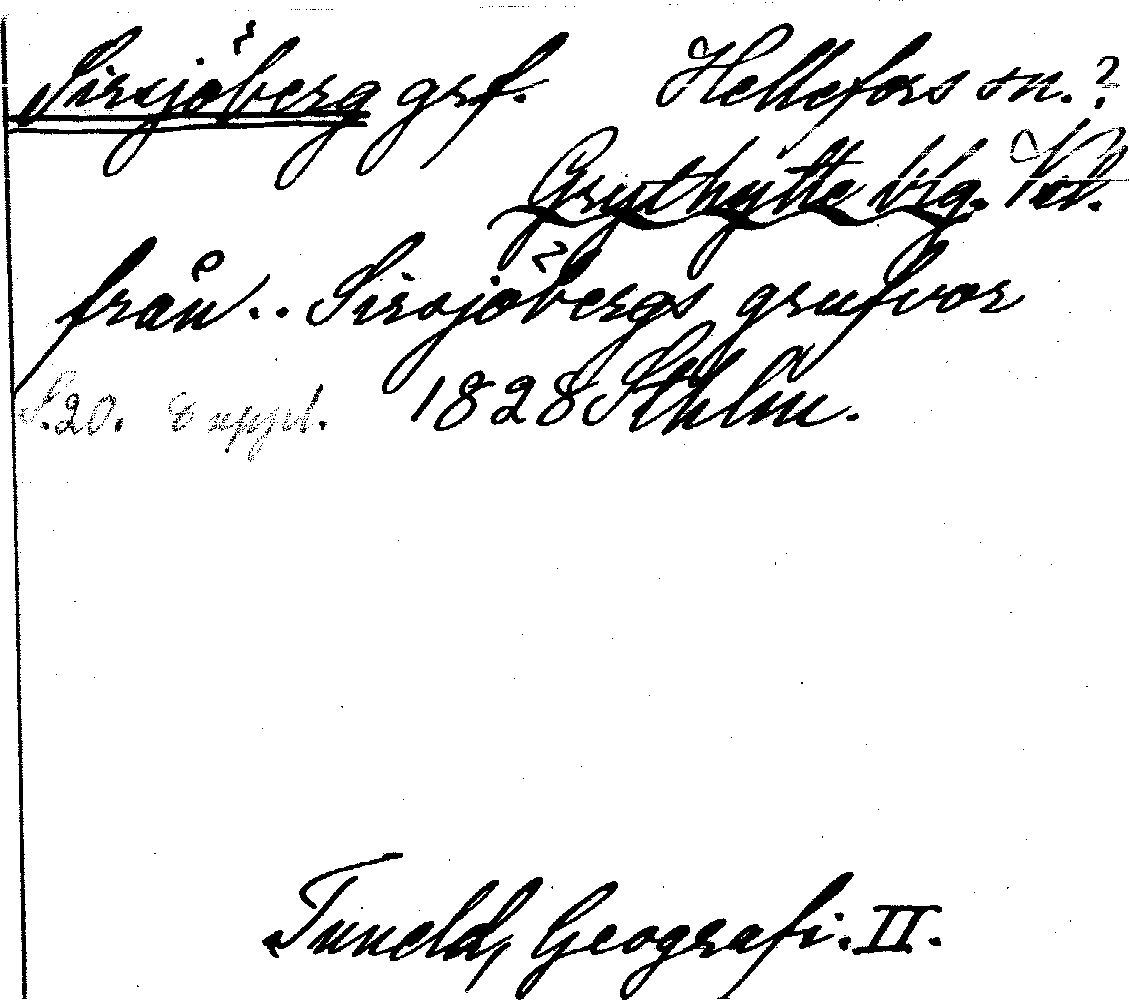 Sirsjöberg grf. Hellefors sn.?
Grythytte blg. Vstl.
från .. Sirsjöbergs grufvor
S.20. Suppl. 1828 Sthlm.
Tuneld, Geografi. II.